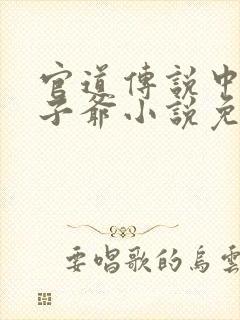 官道傳說中
子爺小說免
要唱歌的烏雲